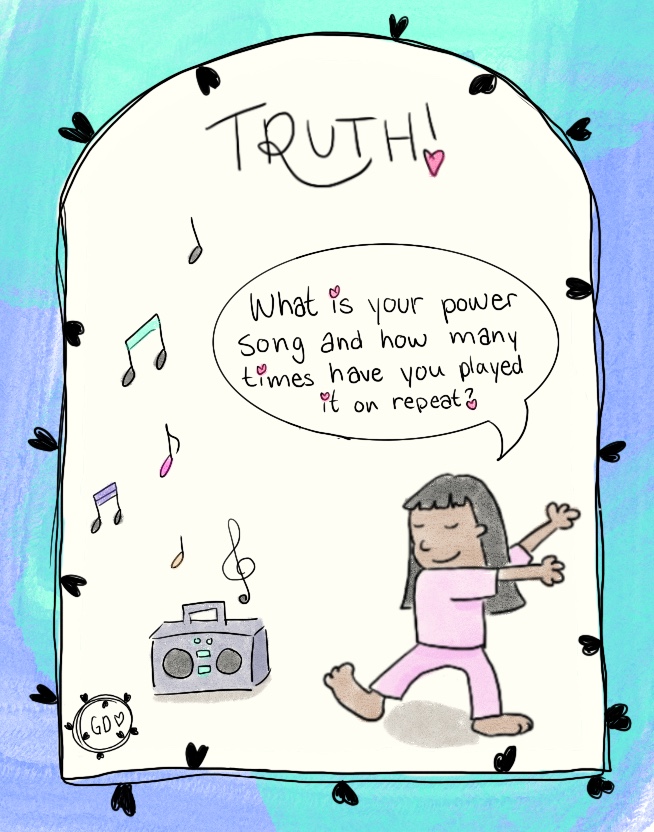 TRUTH!
What is your power
song and how many
times have you played
it on repeat?
GD